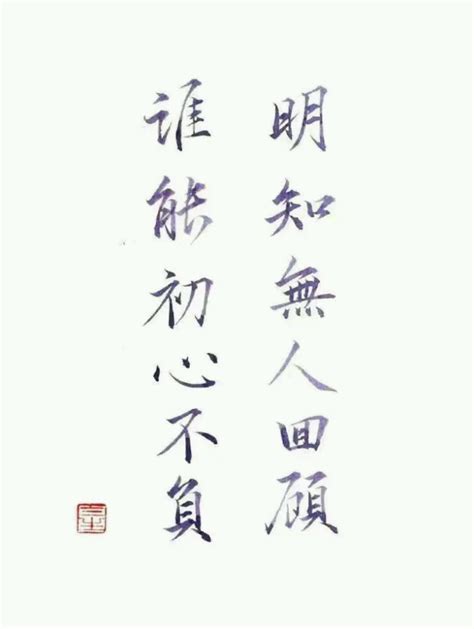 明知無人回顾
谁能初心不負